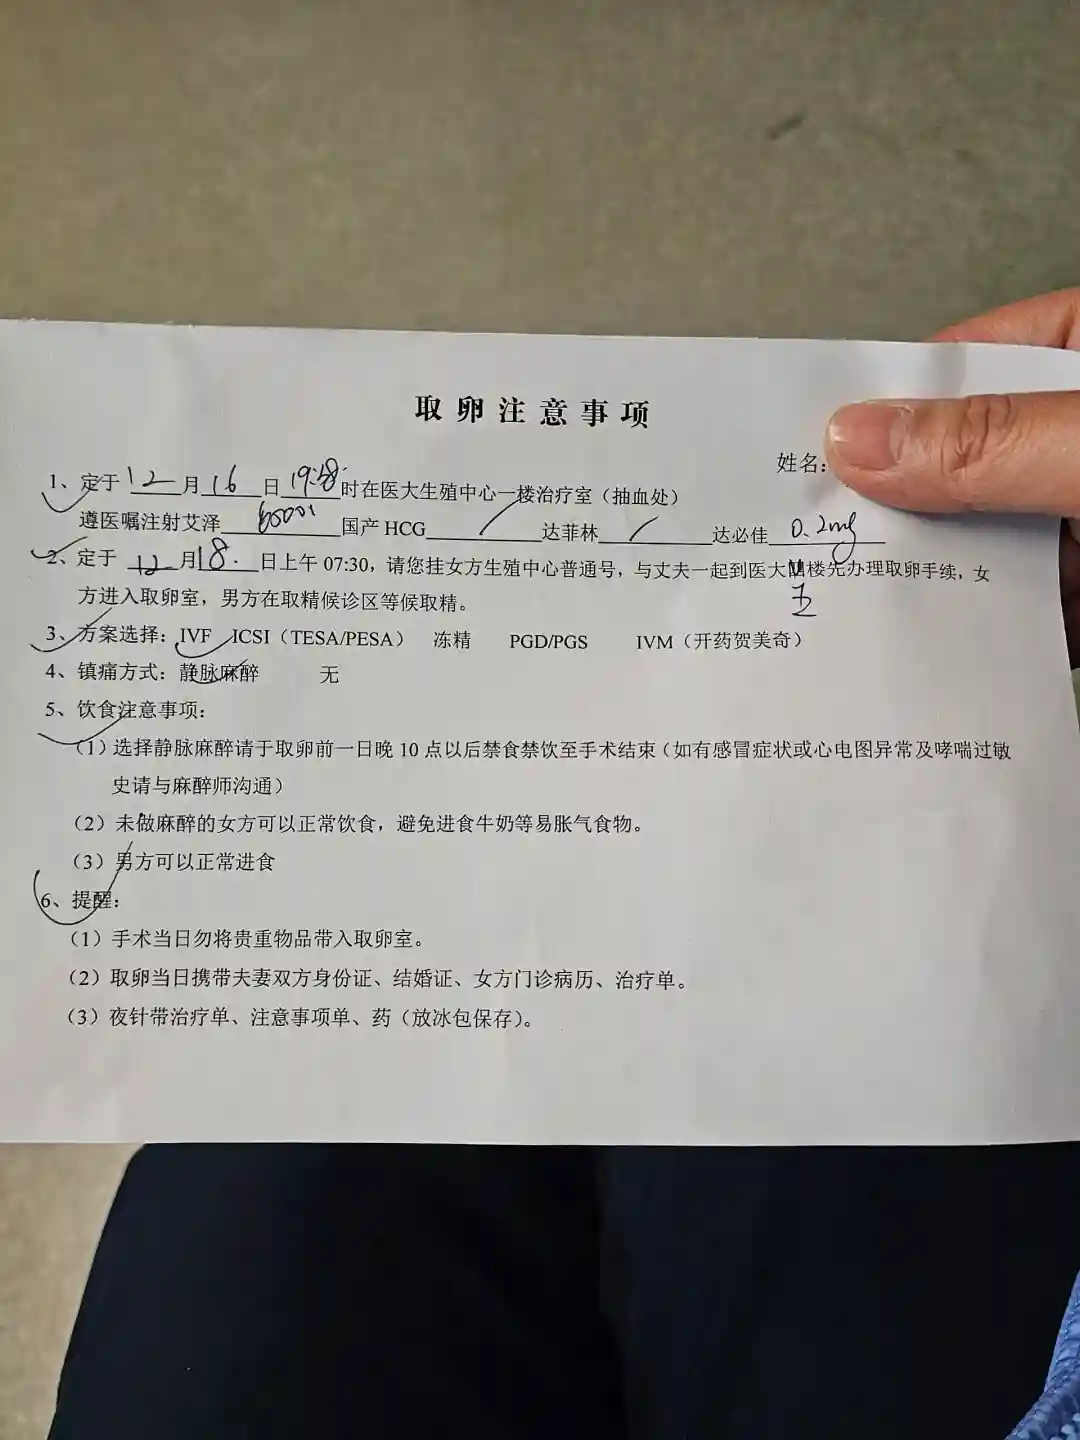 取卵注意事项
姓名:
1、定于 12 月 16 日 19:38 时在医大生殖中心一楼治疗室（抽血处）
遵医嘱注射艾泽 国产 HCG / 达菲林 / 达必佳 0.2mg
2、定于 12 月 18. 日上午 07:30，请您挂女方生殖中心普通号，与丈夫一起到医大 楼先办理取卵手续，女
五
方进入取卵室，男方在取精候诊区等候取精。
3、方案选择：IVF ICSI（TESA/PESA） 冻精 PGD/PGS IVM（开药贺美奇）
4、镇痛方式：静脉麻醉 无
5、饮食注意事项：
（1）选择静脉麻醉请于取卵前一日晚 10 点以后禁食禁饮至手术结束（如有感冒症状或心电图异常及哮喘过敏
史请与麻醉师沟通）
（2）未做麻醉的女方可以正常饮食，避免进食牛奶等易胀气食物。
（3）男方可以正常进食
6、提醒：
（1）手术当日勿将贵重物品带入取卵室。
（2）取卵当日携带夫妻双方身份证、结婚证、女方门诊病历、治疗单。
（3）夜针带治疗单、注意事项单、药（放冰包保存）。